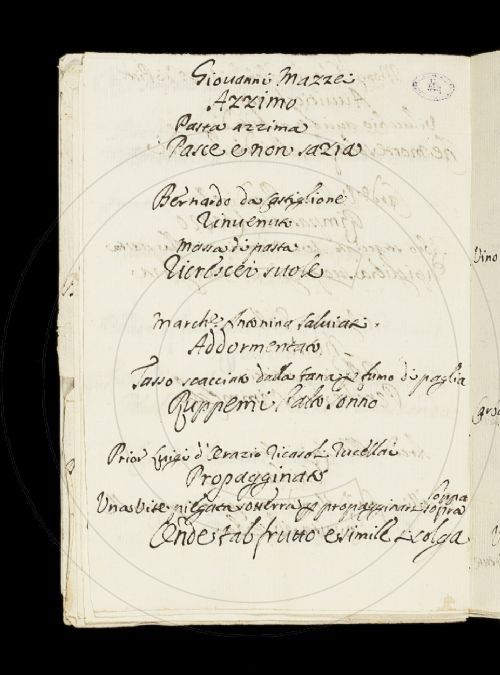 Giovanni Mazzei
Azzimo
Pasta azzima
Pasce e non sazia
Bernardo da Castiglione
Rinvenuto
Massa di pasta
Ricrescer suole
March. Antonino Salviati
Addormentato
Tasso scacciato dalla tana p fumo di paglia
Ruppemi l'alto sonno
Prior Luigi d'Orazio Ricasoli Rucellai
Propagginato
Una vite piegata sotterra p propagginare
soppa
sopra
Onde tal frutto e simile si colga
Vino